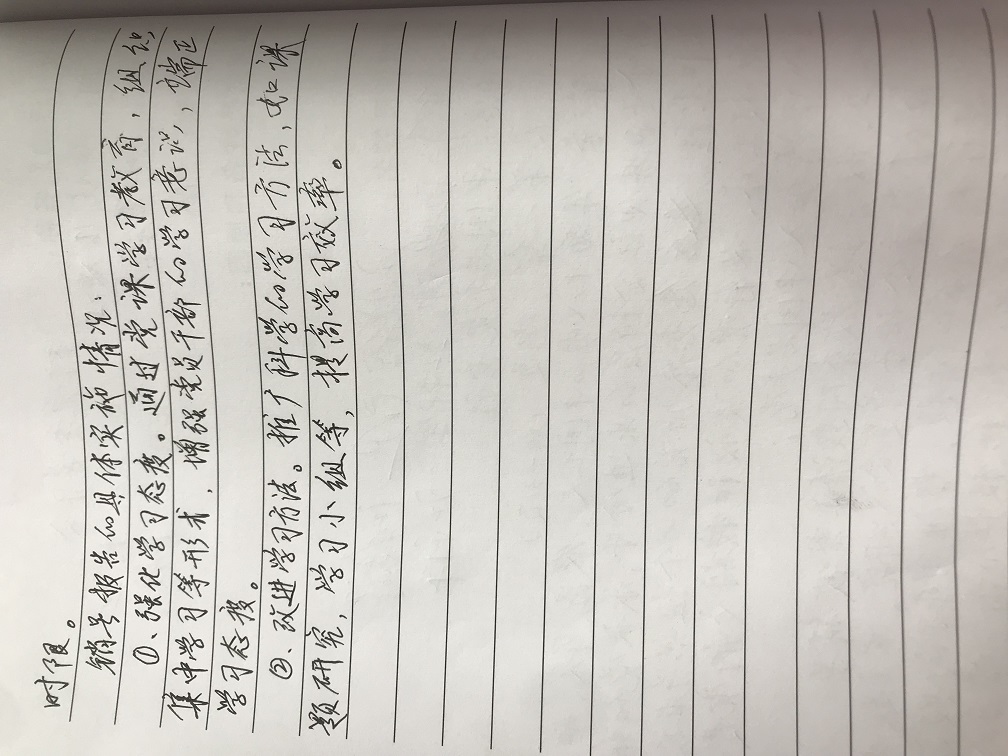 时限。
销号报告的具体实施情况：
①、强化学习态度。通过党课学习教育，组织
集中学习等形式，增强党员干部的学习意识，端正
学习态度。
②、改进学习方法。推广科学的学习方法，如课
题研究，学习小组等，提高学习效率。